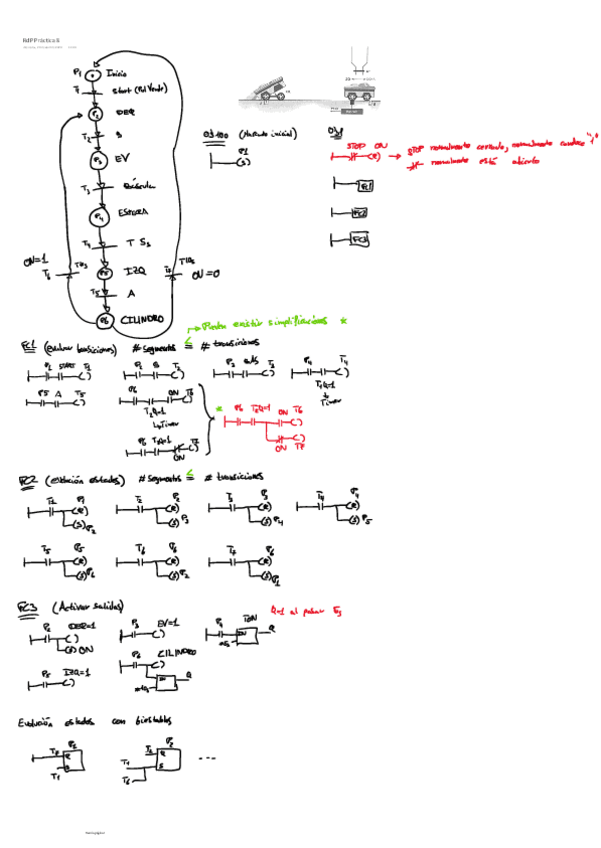 RdP Práctica 8
P1 Inicio
T1 Start (Pul Verde)
P2 DER
T2 B
P3 EV
T3 Báscula
P4 ESPERA
T4 T 5s
P5 IZQ
T5 A
P6 CILINDRO
ON=1
T6
T7
ON=0
OB100 (Marcado inicial)
P1
(S)
OB1
STOP ON
(R)
STOP normalmente cerrado, normalmente conduce "1"
normalmente está abierto
FC1
FC2
FC3
Pueden existir simplificaciones *
FC1 (evaluar transiciones) # segmentos ≤ # transiciones
P1 START T1
P2 B T2
P3 T3
P4 T4
T1Q=1
Timer
P5 A T5
P6 ON T6
T2Q=1
Timer
P6 T2Q=1 T7
ON
* P6 T2Q=1 ON T6
ON T7
FC2 (evolución estados) # segmentos ≤ # transiciones
T1 P1
(R)
(S) P2
T2 P2
(R)
(S) P3
T3 P3
(R)
(S) P4
T4 P4
(R)
(S) P5
T5 P5
(R)
(S) P6
T6 P6
(R)
(S) P2
T7 P6
(R)
(S) P1
FC3 (Activar salidas)
P2 DER=1
(S) ON
P3 EV=1
P4 TON
IN Q
Q=1 al pasar 5s
P5 IZQ=1
P6 CILINDRO
IN Q
Evolución estados con biestables
T7 P1
R
S
T1
T2 P2
R
T1 S
T6
...